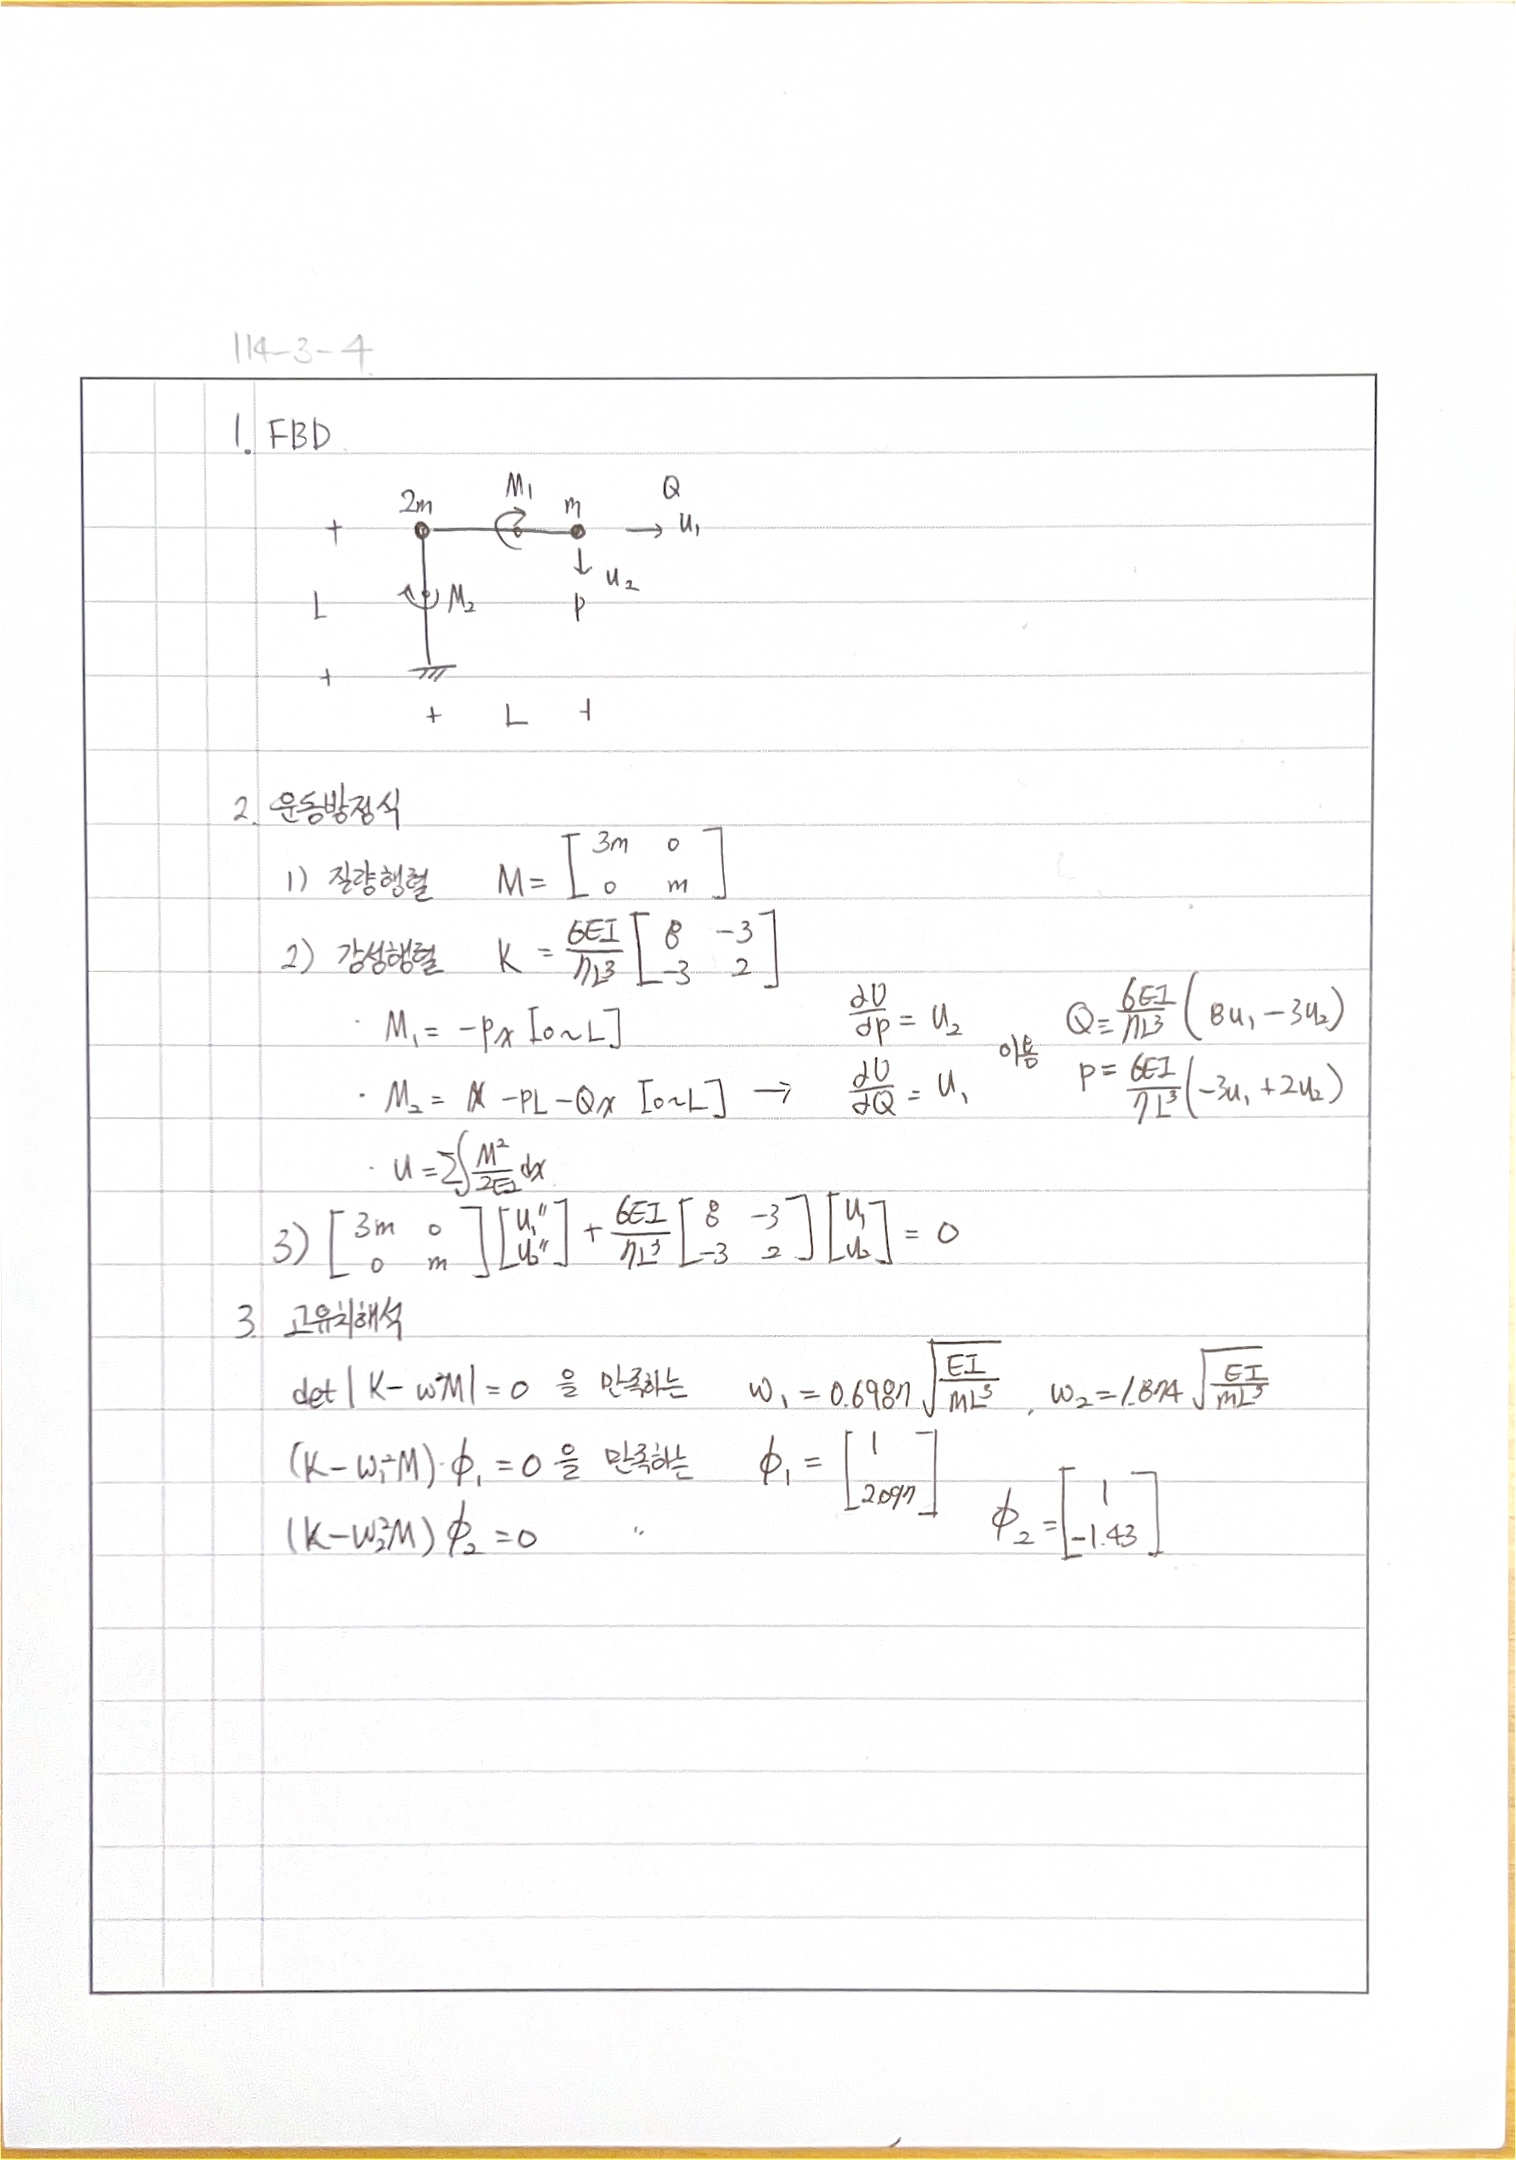 114-3-4
1. FBD
2m M₁ m Q
+ → u₁
↓ u₂
L M₂ P
+
+ L +
2. 운동방정식
1) 질량행렬 M = [3m 0; 0 m]
2) 강성행렬 K = 6EI/7L³ [8 -3; -3 2]
· M₁ = -Px [0~L] ∂U/∂P = u₂ 이용 Q = 6EI/7L³ (8u₁ - 3u₂)
· M₂ = -PL - Qx [0~L] → ∂U/∂Q = u₁ P = 6EI/7L³ (-3u₁ + 2u₂)
· U = Σ∫ M²/2EI dx
3) [3m 0; 0 m] [u₁''; u₂''] + 6EI/7L³ [8 -3; -3 2] [u₁; u₂] = 0
3. 고유치해석
det | K - ω²M | = 0 을 만족하는 ω₁ = 0.6987 √(EI/mL³) , ω₂ = 1.874 √(EI/mL³)
(K - ω₁²M)·ϕ₁ = 0 을 만족하는 ϕ₁ = [1; 2.097]
(K - ω₂²M) ϕ₂ = 0 〃 ϕ₂ = [1; -1.43]